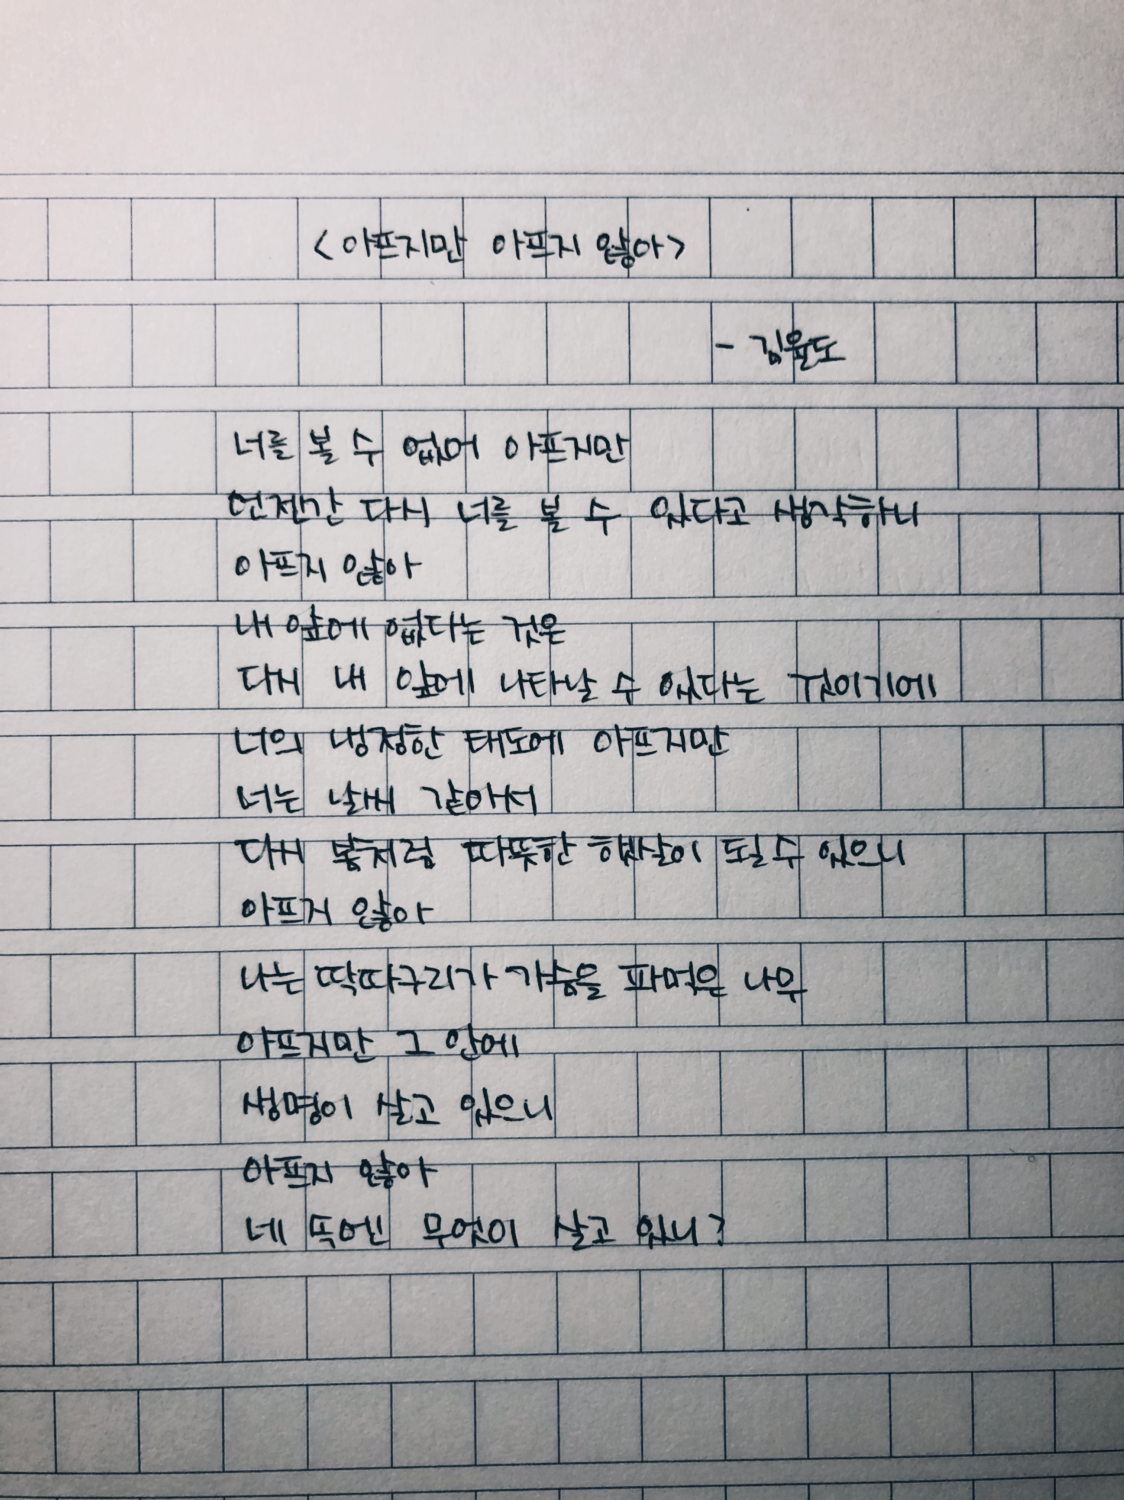 <아프지만 아프지 않아>
- 김윤도
너를 볼 수 없어 아프지만
언젠간 다시 너를 볼 수 있다고 생각하니
아프지 않아
내 앞에 없다는 것은
다시 내 앞에 나타날 수 있다는 것이기에
너의 냉정한 태도에 아프지만
너는 날씨 같아서
다시 봄처럼 따뜻한 햇살이 될 수 있으니
아프지 않아
나는 딱따구리가 가슴을 파먹은 나무
아프지만 그 안에
생명이 살고 있으니
아프지 않아
네 똑엔 무엇이 살고 있니?